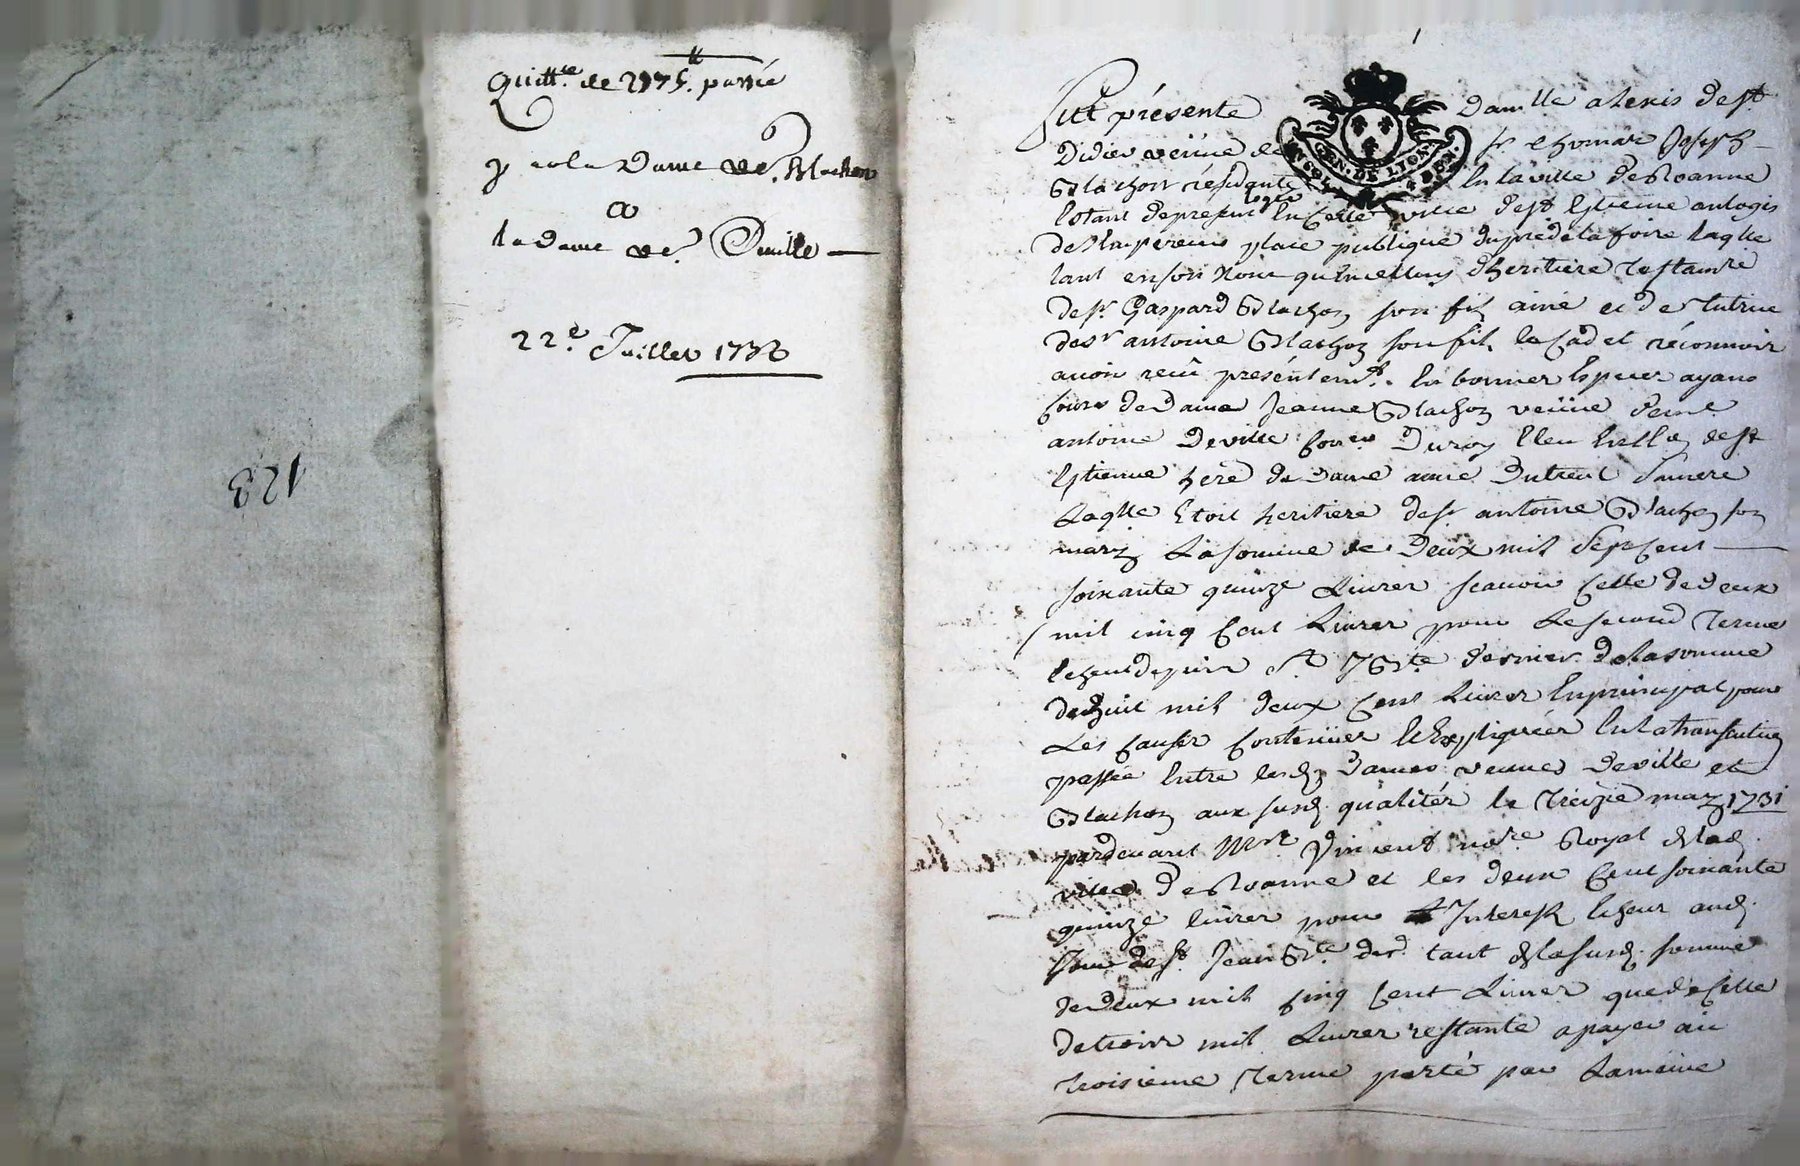 123
Quittce de 2775lt. passée
p ar la Dame ve. Blachon
a
la dame ve. Deville
22e. Juillet 1732
Fut présente damlle alexis de st
Didier veüve de sr thomas Joseph
Blachon résidante En la ville de Roanne
Estant de present logée En Cette ville de st Estienne au logis
place publique du pré de la foire laqlle
tant en son nom qu'en celluy d'heritiere testamre
de sr. Gaspard Blachon son fils ainé et de tutrice
de sr antoine Blachon son fils le Cadet réconnoit
avoir reçû présentemt. En bonnes Especes ayans
Cours de Dame Jeanne Blachon veüve de mr
antoine Deville Coner Du roy Eleu En l'Eon de st
Estienne here de Dame anne Dutreul sa mere
Laqlle Etoit heritiere de sr antoine Blachon son
mary La somme de Deux mil Sept Cent
soixante quinze Livres scavoir Celle de deux
mil cinq Cent Livres pour Le second Terme
Echeu depuis st JBte dernier de la somme
de huit mil deux Cent Livres En principal pour
Les Causes Contenües et Expliquées En la transaction
passée Entre lesd. Dames veuves Deville et
Blachon aux susd. qualités le Treizie may 1731
pardevant Mre Vincent nore Royal de lad.
ville de Roanne et les deux Cent soixante
quinze livres pour Interest Echeus aud.
Jour de st. Jean Bte. der. tant de la susd. somme
de deux mil Cinq Cent Livres que de Celle
de trois mil Livres restante a payer au
troisieme Terme porté par La même
GEN. DE LYON